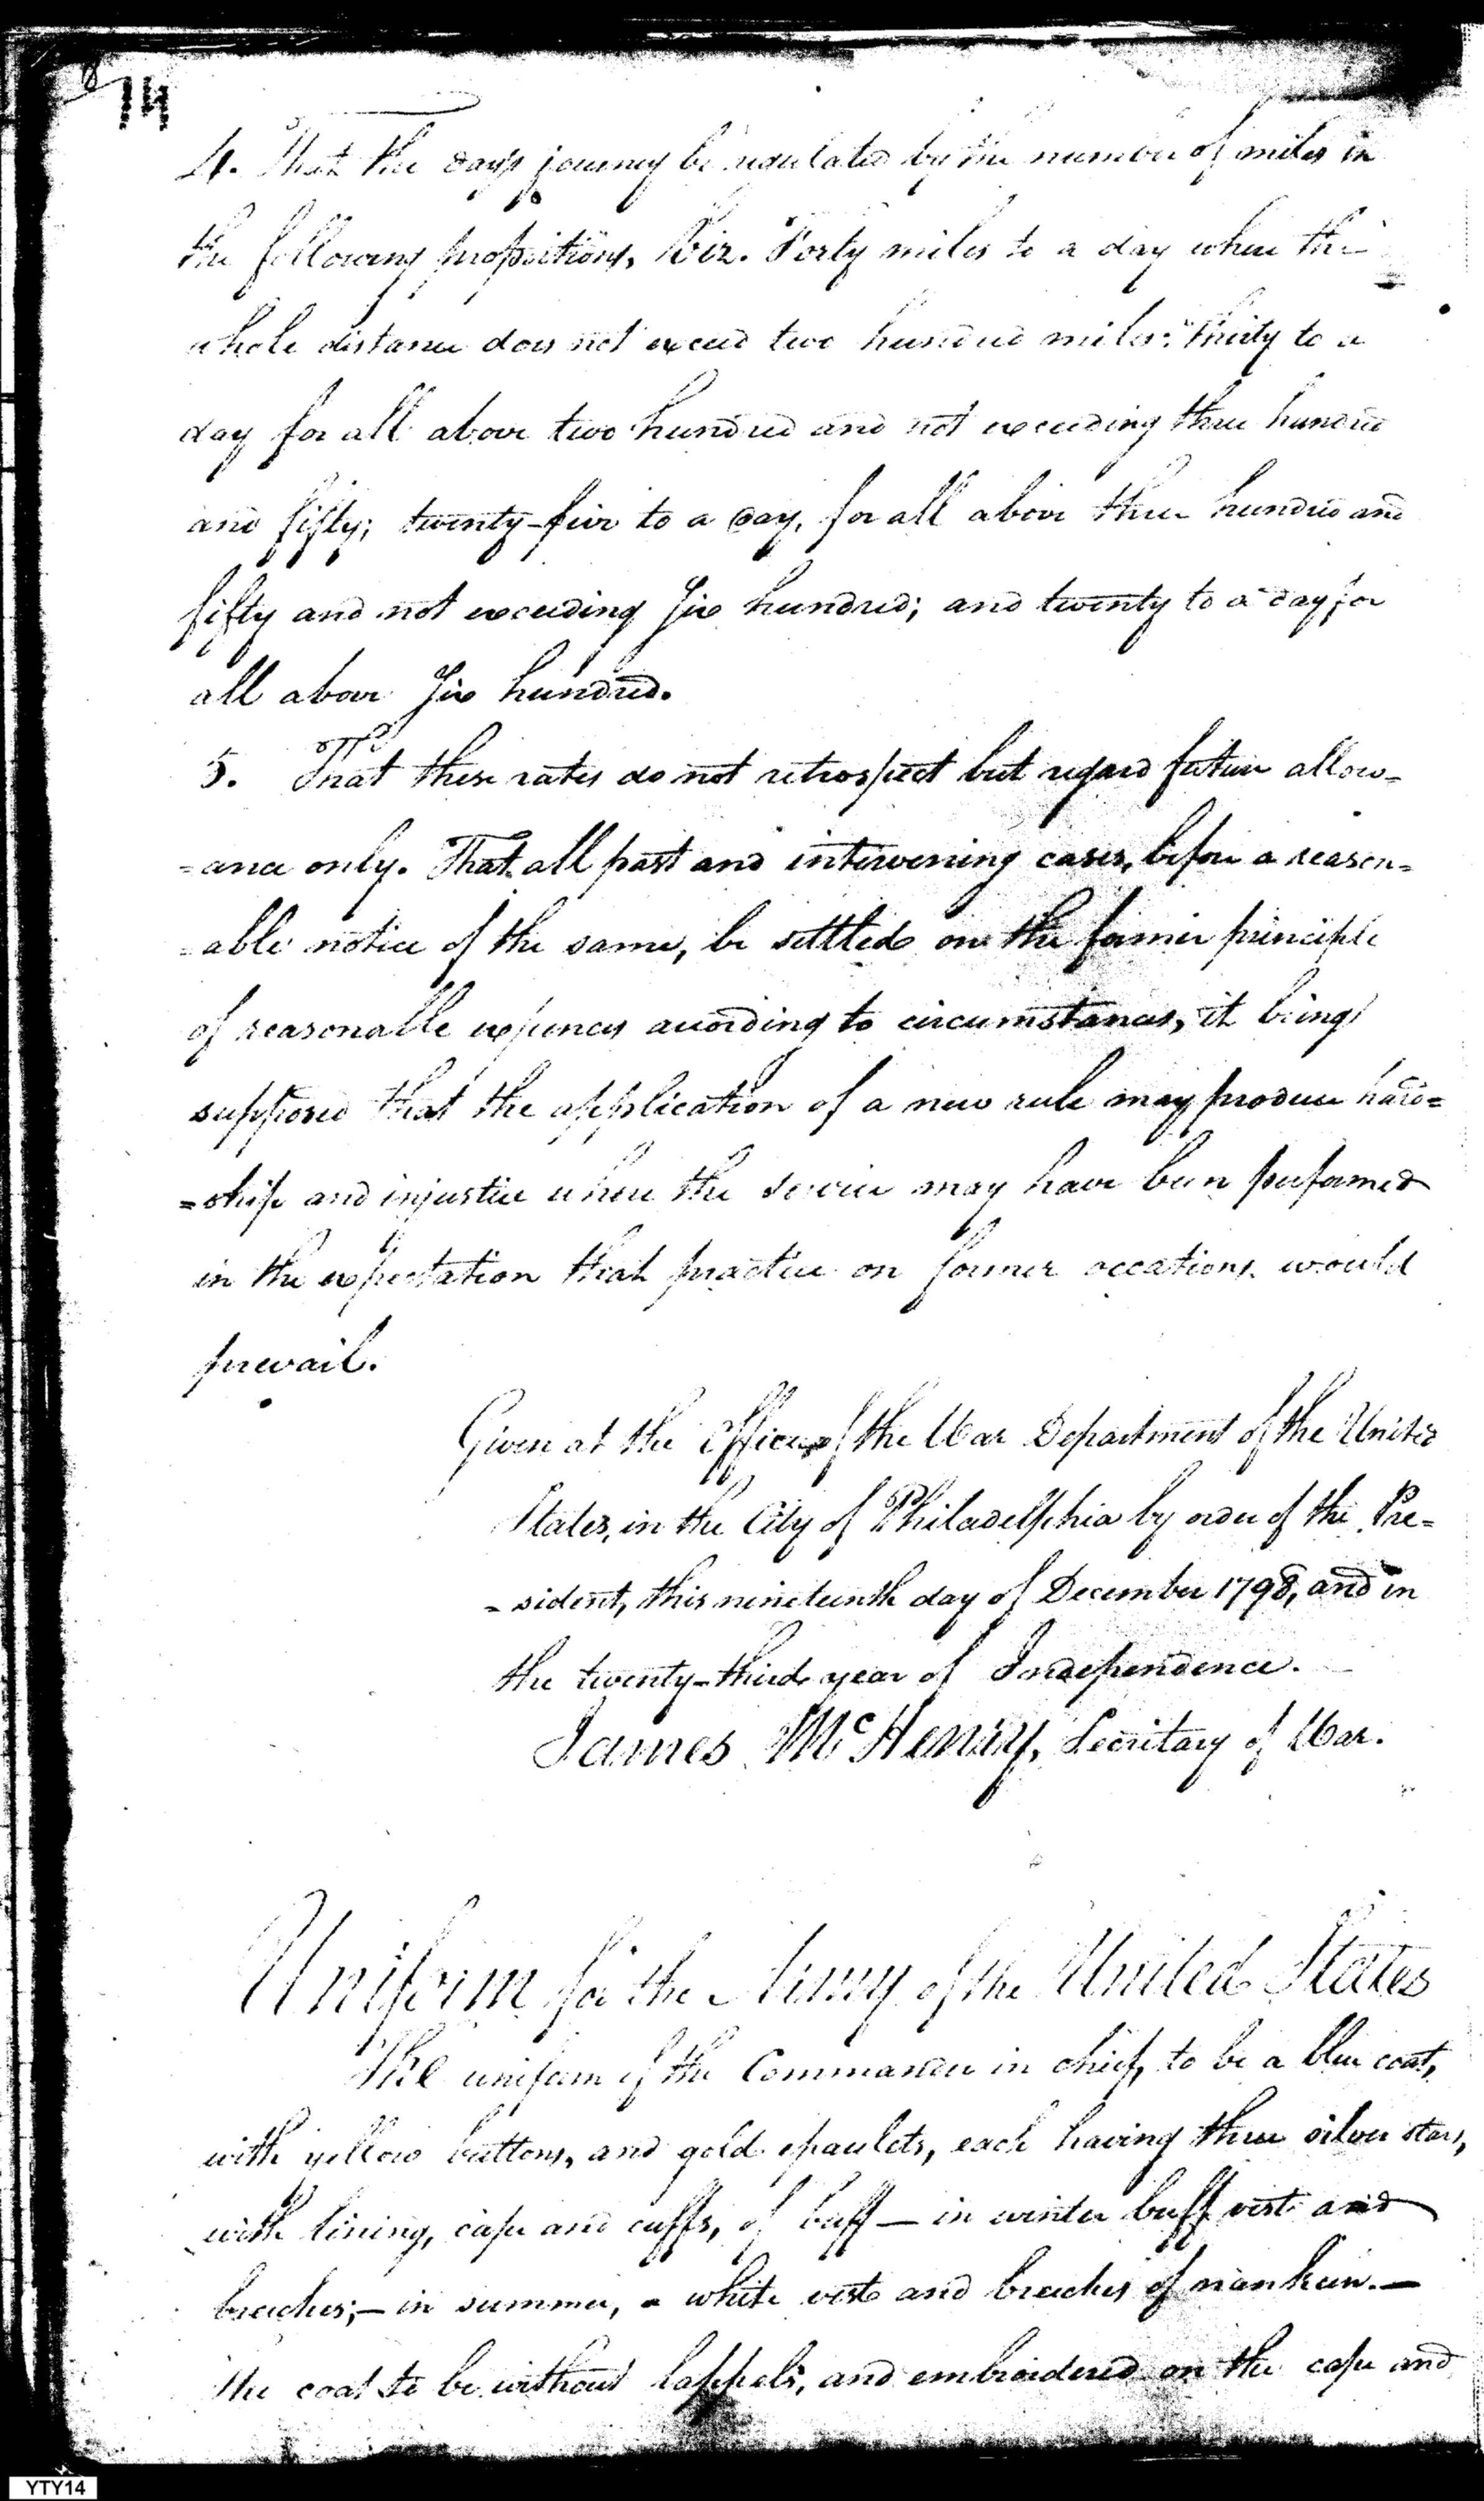 14
4. That the day's journey be regulated by the number of miles in
the following proportions, Viz. Forty miles to a day where the
whole distance does not exceed two hundred miles: Thirty to a
day for all above two hundred and not exceeding three hundred
and fifty; twenty-five to a day, for all above three hundred and
fifty and not exceeding Six hundred; and twenty to a day for
all above Six hundred.
5. That these rates do not retrospect but regard future allow-
-ance only. That all past and intervening cases, before a reason-
-able notice of the same, be settled on the former principle
of reasonable expences according to circumstances, it being
supposed that the application of a new rule may produce hard=
=ship and injustice where the service may have been performed
in the expectation that practice on former occations would
prevail.
Given at the Office of the War Department of the United
States, in the City of Philadelphia by order of the Pre=
=sident, this nineteenth day of December 1798, and in
the twenty-third year of Independence.
James McHenry, Secretary of War.
Uniform for the Army of the United States
The uniform of the Commander in chief, to be a blue coat,
with yellow buttons, and gold epaulets, each having three silver stars,
with lining, cape and cuffs, of buff — in winter buff vest and
breeches; — in summer, a white vest and breeches of nankeen. —
The coat to be without lappels, and embroidered on the cape and
YTY14